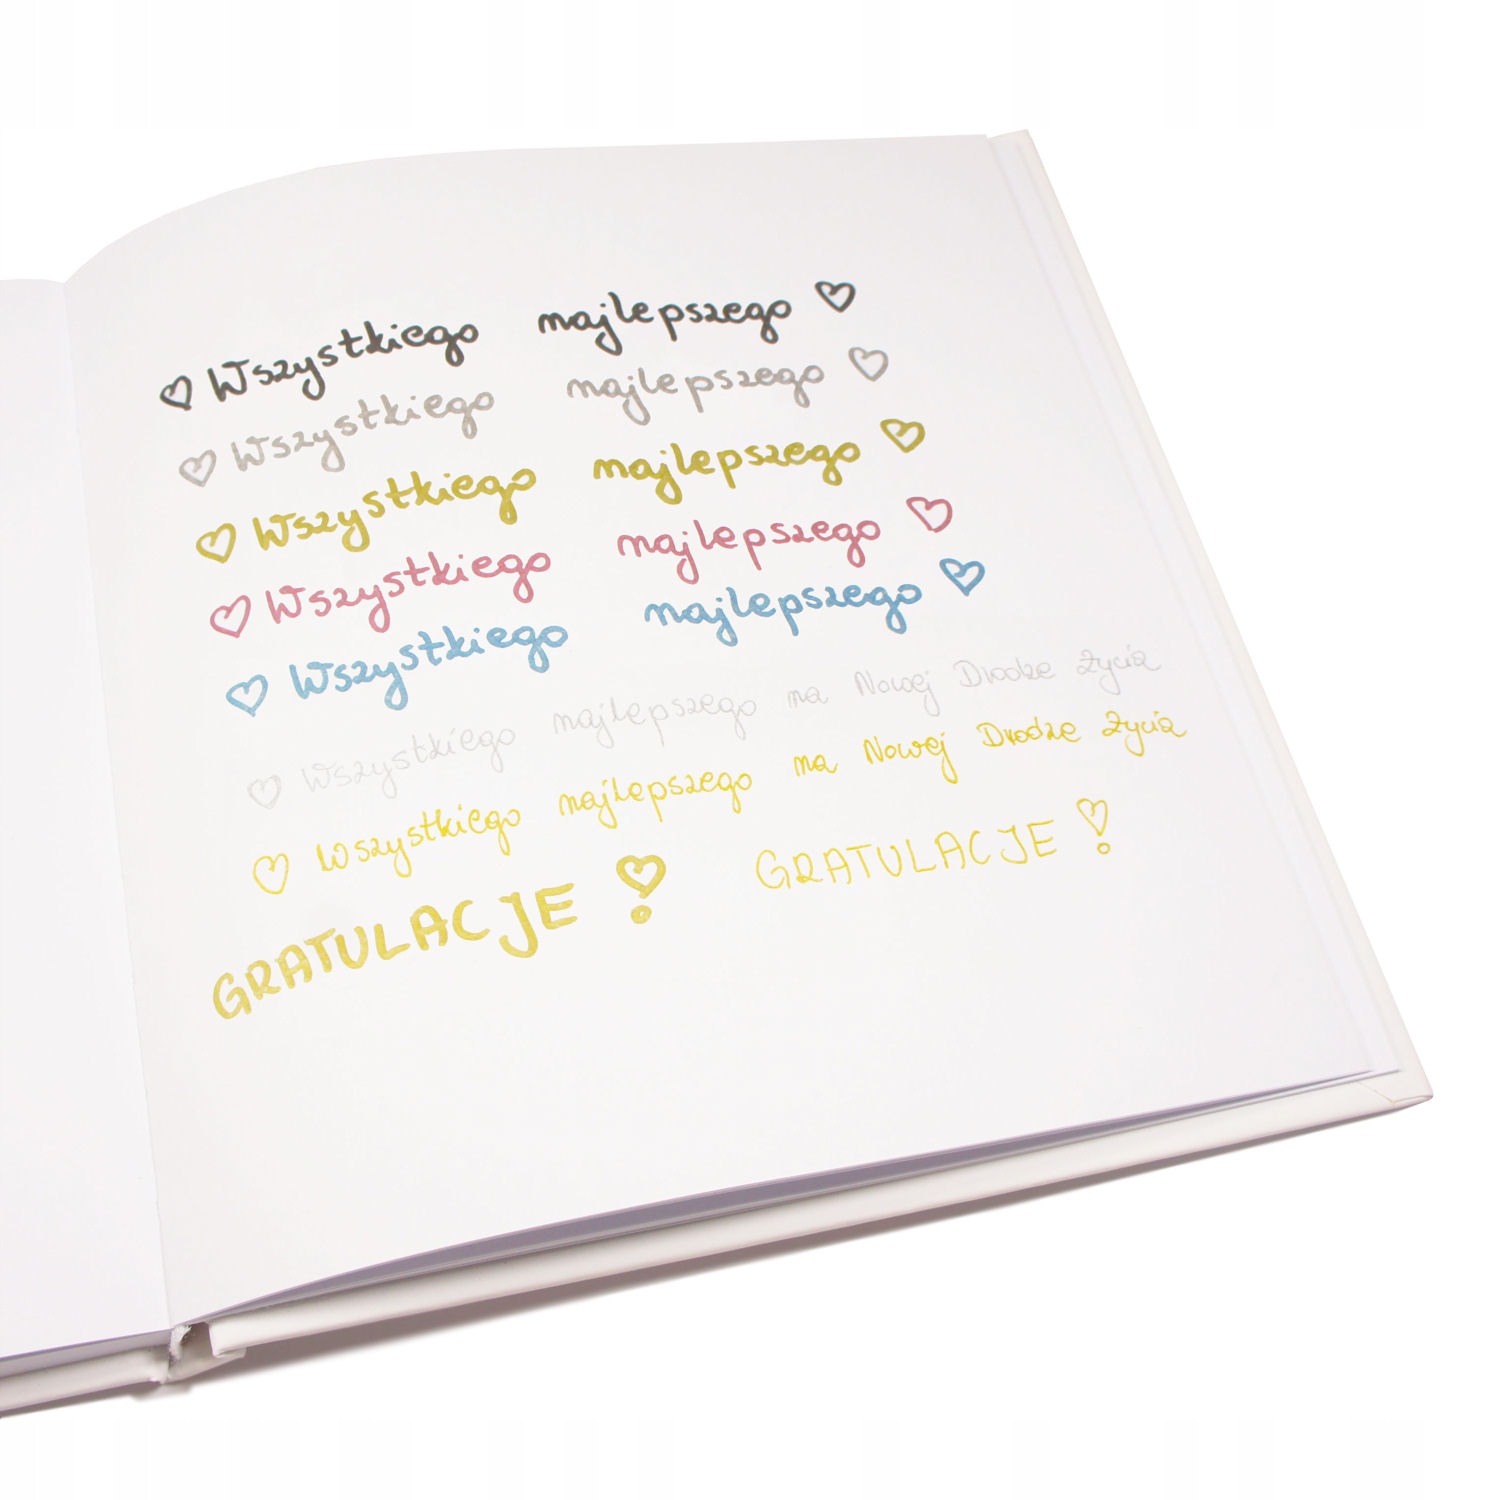 ♡ Wszystkiego najlepszego ♡
♡ Wszystkiego najlepszego ♡
♡ Wszystkiego najlepszego ♡
♡ Wszystkiego najlepszego ♡
♡ Wszystkiego najlepszego ♡
♡ Wszystkiego najlepszego na Nowej Drodze Życia
♡ Wszystkiego najlepszego na Nowej Drodze Życia
GRATULACJE ! GRATULACJE !